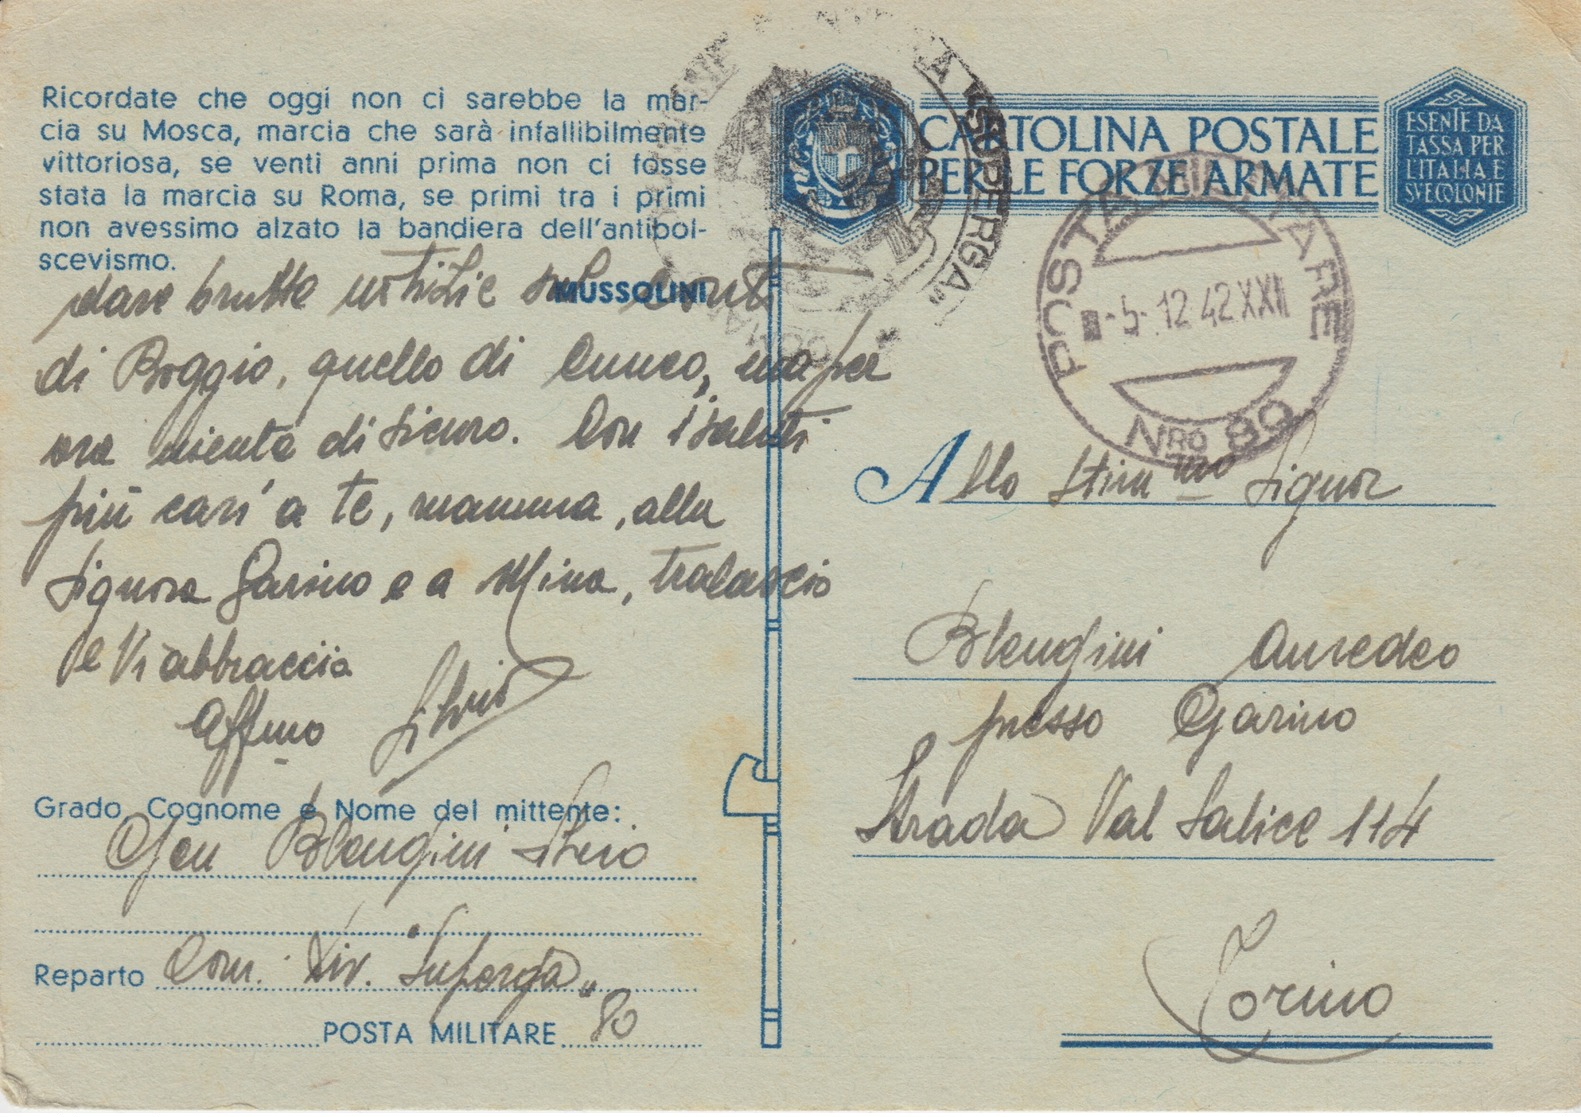 Ricordate che oggi non ci sarebbe la mar-
cia su Mosca, marcia che sarà infallibilmente
vittoriosa, se venti anni prima non ci fosse
stata la marcia su Roma, se primi tra i primi
non avessimo alzato la bandiera dell'antibol-
scevismo.
MUSSOLINI
dare brutte notizie sul conto
di Boggio, quello di Cuneo, ma per
ora niente di sicuro. Con i saluti
più cari a te, mamma, alla
Signora Garino e a Mina, tralascio
e Vi abbraccia
Aff.mo Silvio
Grado, Cognome e Nome del mittente:
Gen Blengini Silvio
Reparto Com. Div. "Superga"
POSTA MILITARE 80
"SUPERGA"
CARTOLINA POSTALE
PER LE FORZE ARMATE
ESENTE DA
TASSA PER
L'ITALIA E
SVE COLONIE
POSTA MILITARE
-5.12.42 XXI
NRO 80
Allo Stim.mo Signor
Blengini Amedeo
presso Garino
Strada Val Salice 114
Torino